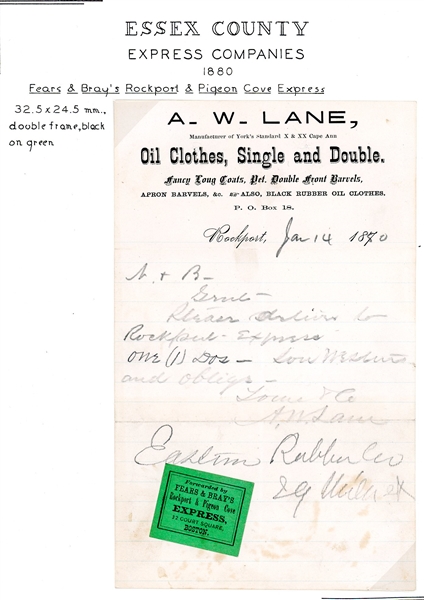 ESSEX COUNTY
EXPRESS COMPANIES
1880
Fears & Bray's Rockport & Pigeon Cove Express
32.5 x 24.5 mm.,
double frame, black
on green
A. W. LANE,
Manufacturer of York's Standard X & XX Cape Ann
Oil Clothes, Single and Double.
Fancy Long Coats, Pet. Double Front Barvels,
APRON BARVELS, &c. ALSO, BLACK RUBBER OIL CLOTHES.
P. O. Box 18.
Rockport, Jan 14 1870
& B—
Gents—
Please deliver to
Rockport Express
one (1) Doz—
and oblige—
Yours & Co
A. W. Lane
Eastern Rubber Co
Forwarded by
FEARS & BRAY'S
Rockport & Pigeon Cove
EXPRESS,
COURT SQUARE,
BOSTON.